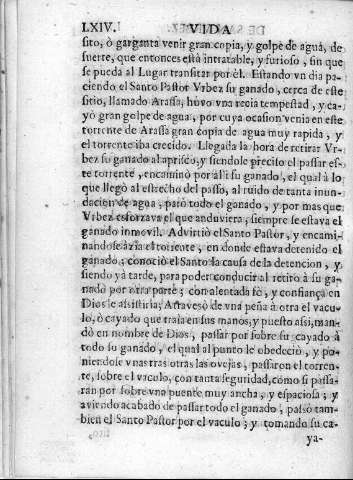 LXIV. VIDA
sito, ò garganta venir gran copia, y golpe de agua, de
suerte, que entonces està intratable, y furioso, sin que
se pueda al Lugar transitar por èl. Estando vn dia pa-
ciendo el Santo Pastor Vrbez su ganado, cerca de este
sitio, llamado Arassa, huvo vna recia tempestad, y ca-
yò gran golpe de agua, por cuya ocasion venia en este
torrente de Arassa gran copia de agua muy rapida, y
el torrente iba crecido. Llegada la hora de retirar Vr-
bez su ganado al aprisco, y siendole preciso el passar es-
te torrente, encaminò por alli su ganado, el qual à lo
que llegò al estrecho del passo, al ruido de tanta inun-
dacion de agua, parò todo el ganado, y por mas que
Vrbez esforzava el que anduviera, siempre se estava el
ganado inmovil. Advirtiò el Santo Pastor, y encami-
nandose àzia el torrente, en donde estava detenido el
ganado; conociò el Santo la causa de la detencion, y
siendo yà tarde, para poder conducir al retiro à su ga-
nado por otra parte; con alentada fè, y confiança en
Dios le assistiria; Atravesò de vna peña à otra el vacu-
lo, ò cayado que traia en sus manos, y puesto assi, man-
dò en nombre de Dios, passar por sobre su cayado à
todo su ganado, el qual al punto le obedeciò, y po-
niendose vnas tras otras las ovejas, passaron el torren-
te, sobre el vaculo, con tanta seguridad, como si passa-
ran por sobre vna puente muy ancha, y espaciosa; y
aviendo acabado de passar todo el ganado, passò tam-
bien el Santo Pastor por el vaculo; y tomando su ca-
ya-